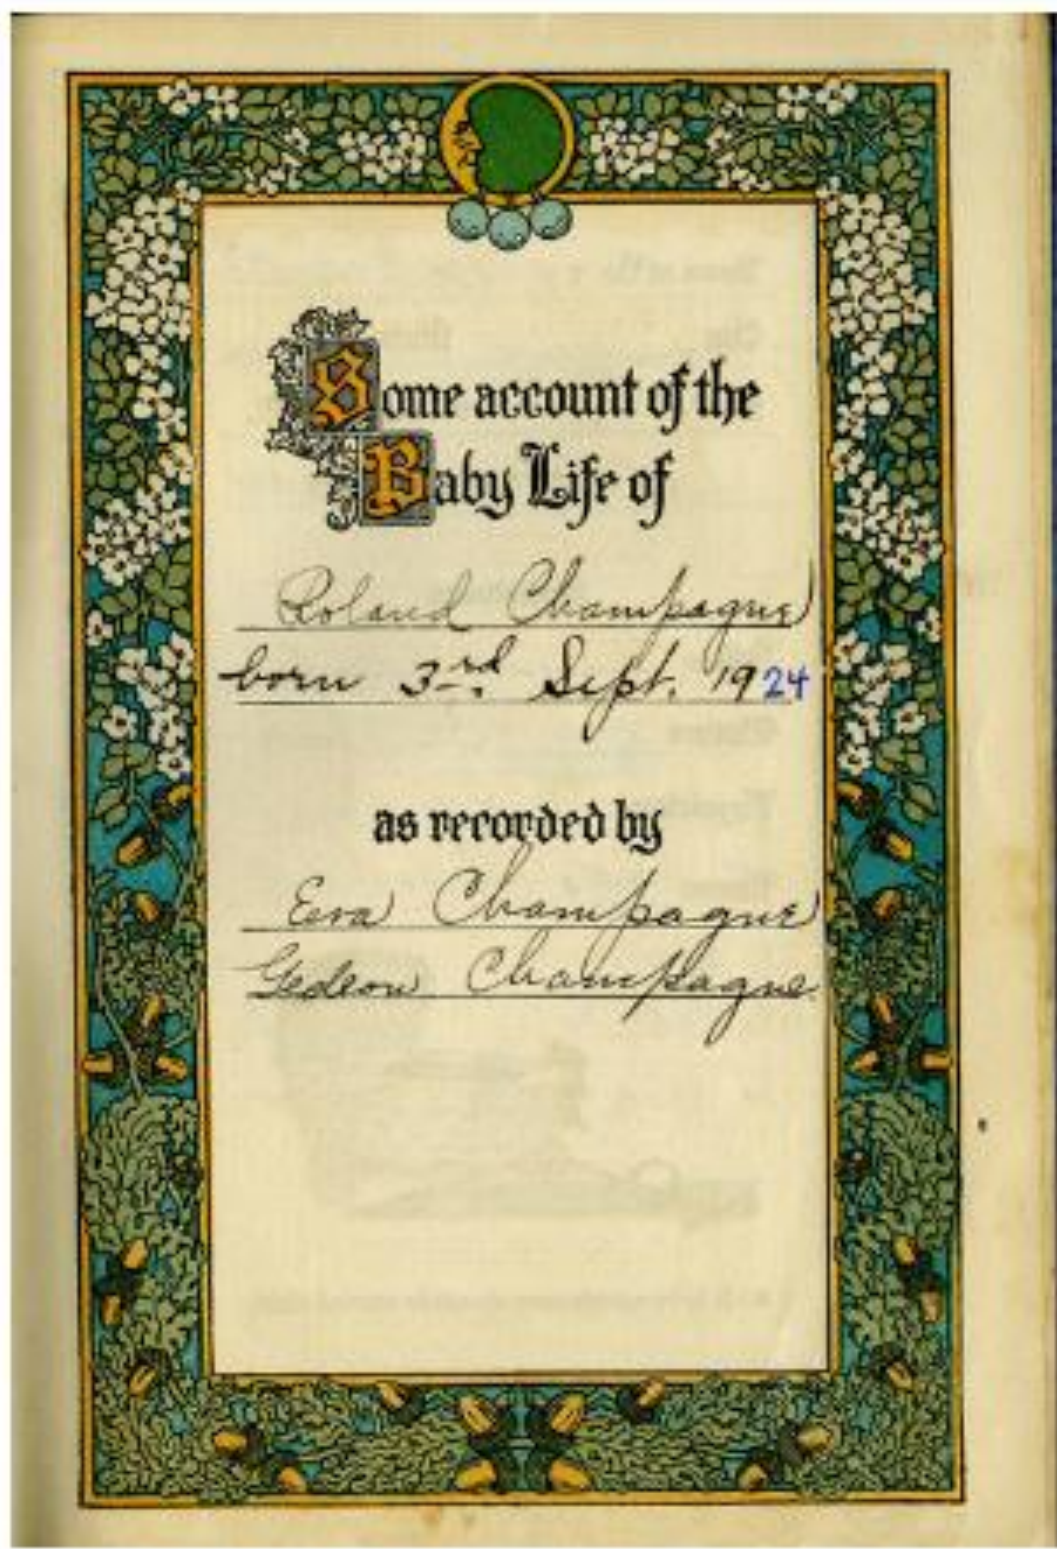 Some account of the
Baby Life of
Roland Champagne
born 3rd Sept. 1924
as recorded by
Eva Champagne
Gedeon Champagne